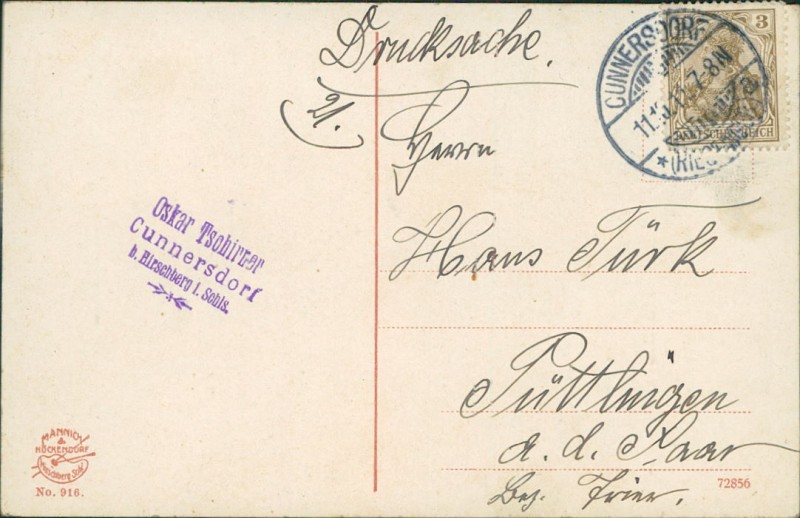 Drucksache.
21.
Herrn
Hans Türk
Püttlingen
a. d. Saar
Bez. Trier.
Oskar Tschirzer
Cunnersdorf
b. Hirschberg i. Schls.
3
DEUTSCHES REICH
CUNNERSDORF
7-8N
MANNICH
&
HÖCKENDORF
No. 916.
72856